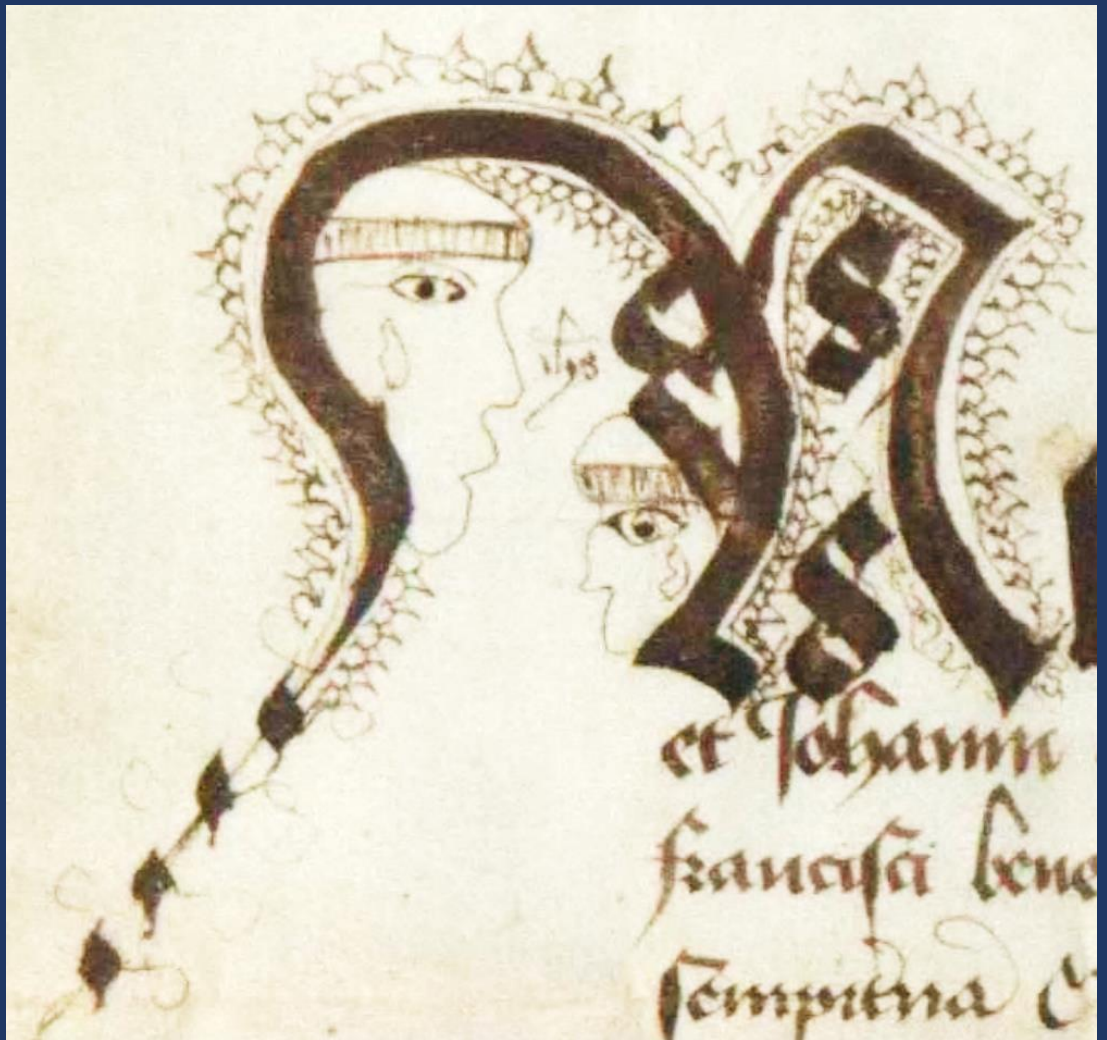 ihs
et Johanni
francisci bene
sempitna